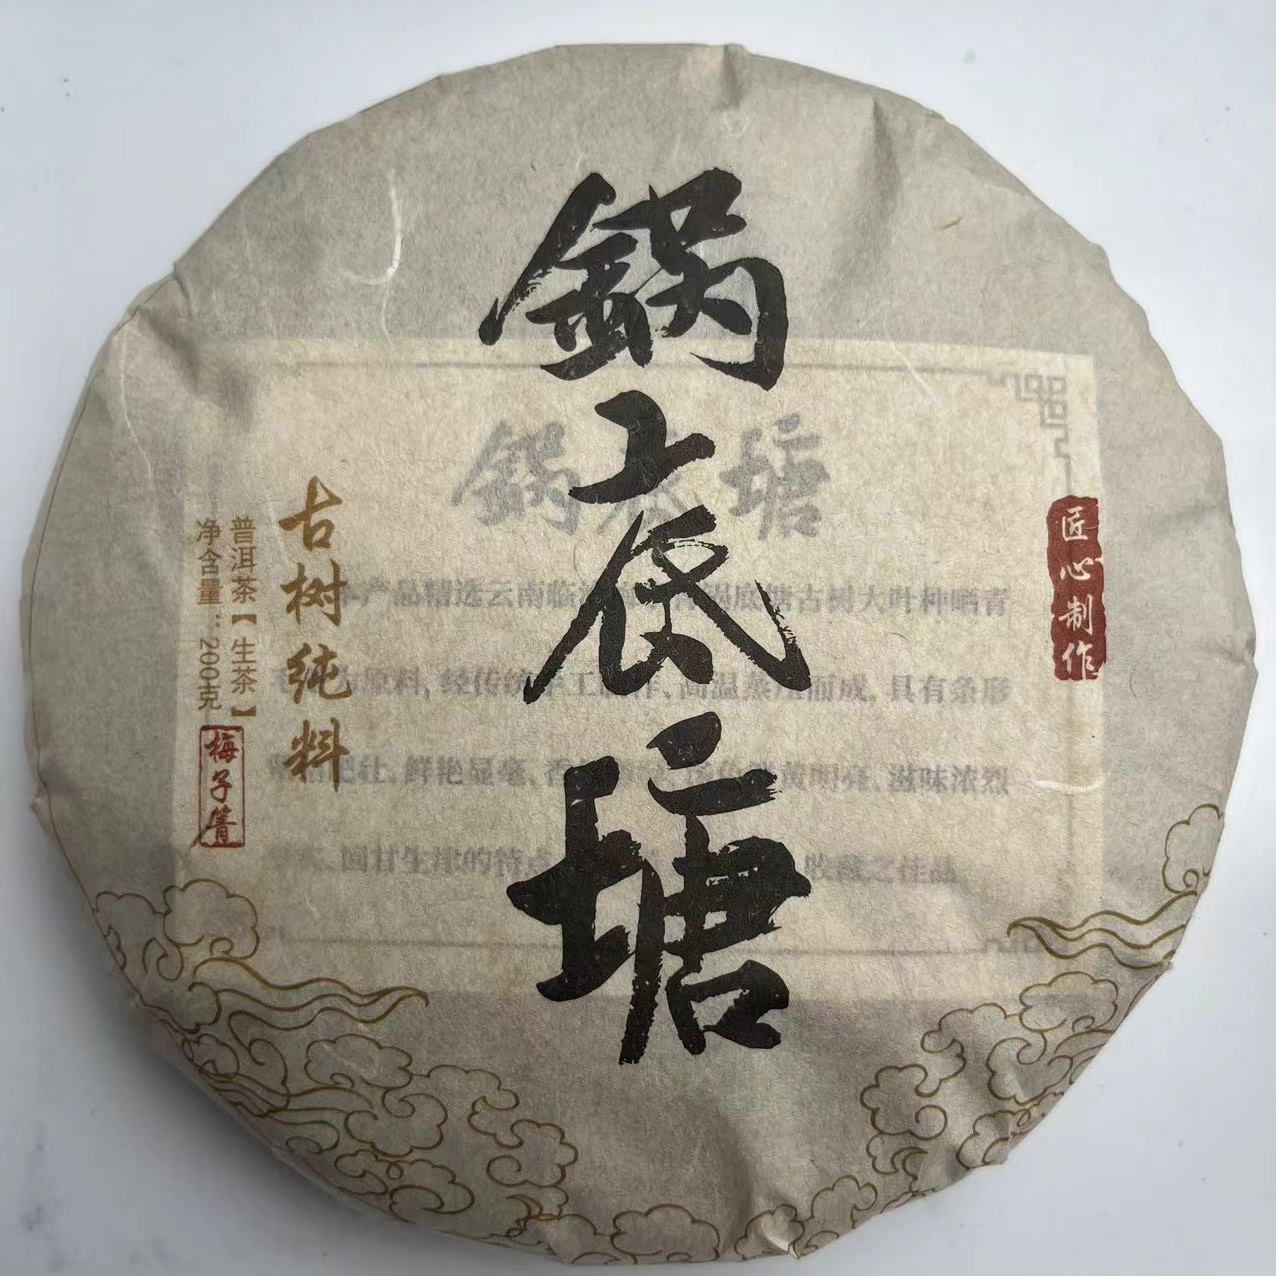 锅底塘
古树纯料
普洱茶【生茶】
净含量：200克
梅子箐
匠心制作
锅底塘
产品精选云南临
底塘古树大叶种晒青
料，经传统
工
作，高温蒸
而成，具有条形
肥壮，鲜艳显毫，香
黄明亮，滋味浓烈
回甘生津的特点
收藏之佳品